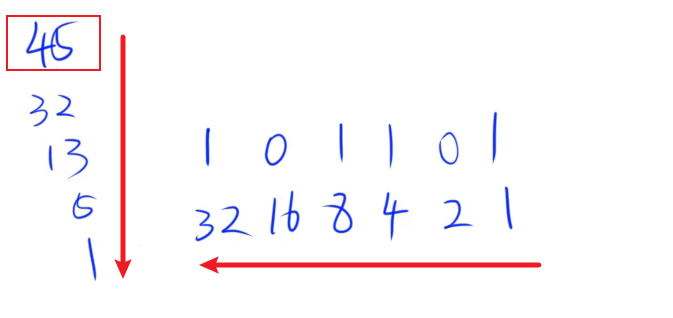 45
32
13
5
1
1 0 1 1 0 1
32 16 8 4 2 1